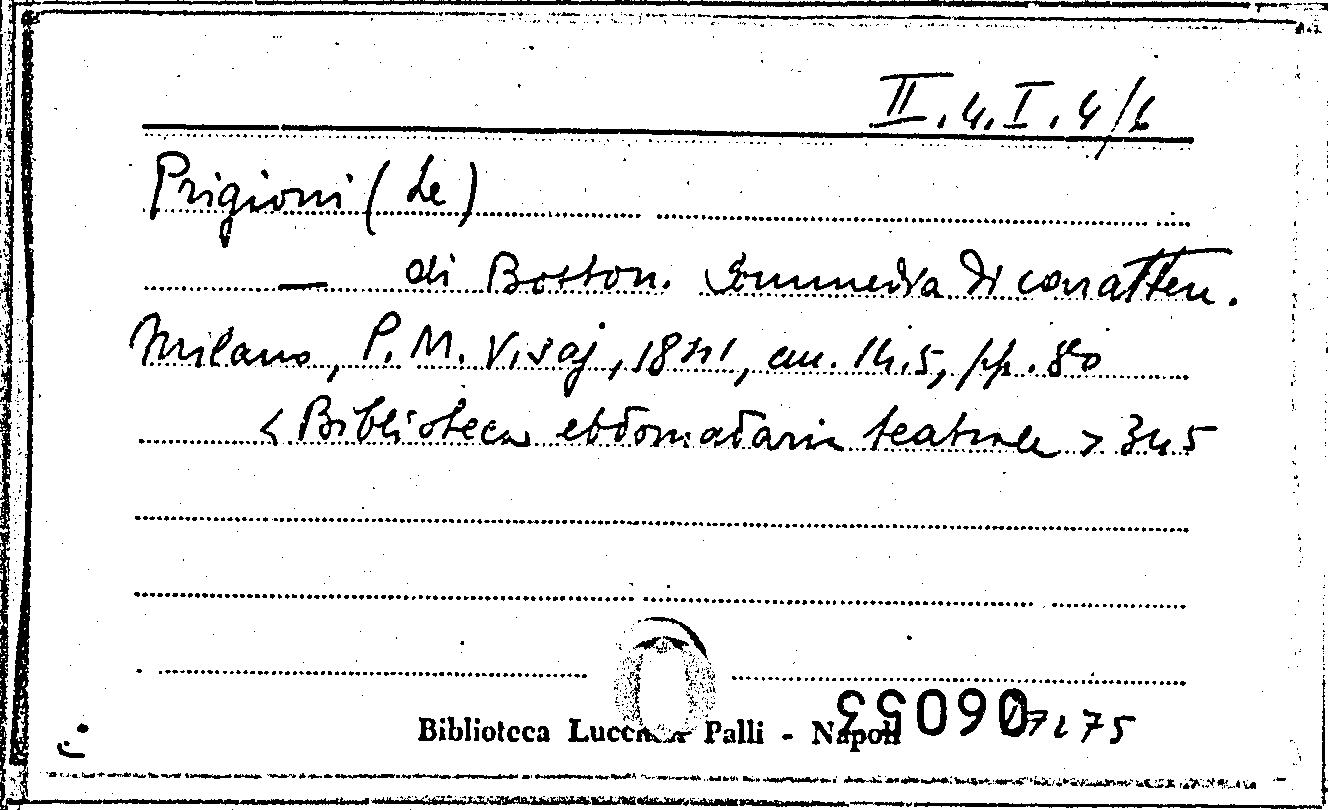 II.4.I.4/6
Prigioni (Le)
— di Boston. Commedia di caratteri.
Milano, P. M. Visaj, 1841, cm. 14.5, pp. 80
< Biblioteca ebdomadaria teatrale > 345
Biblioteca Lucchesi Palli - Napoli